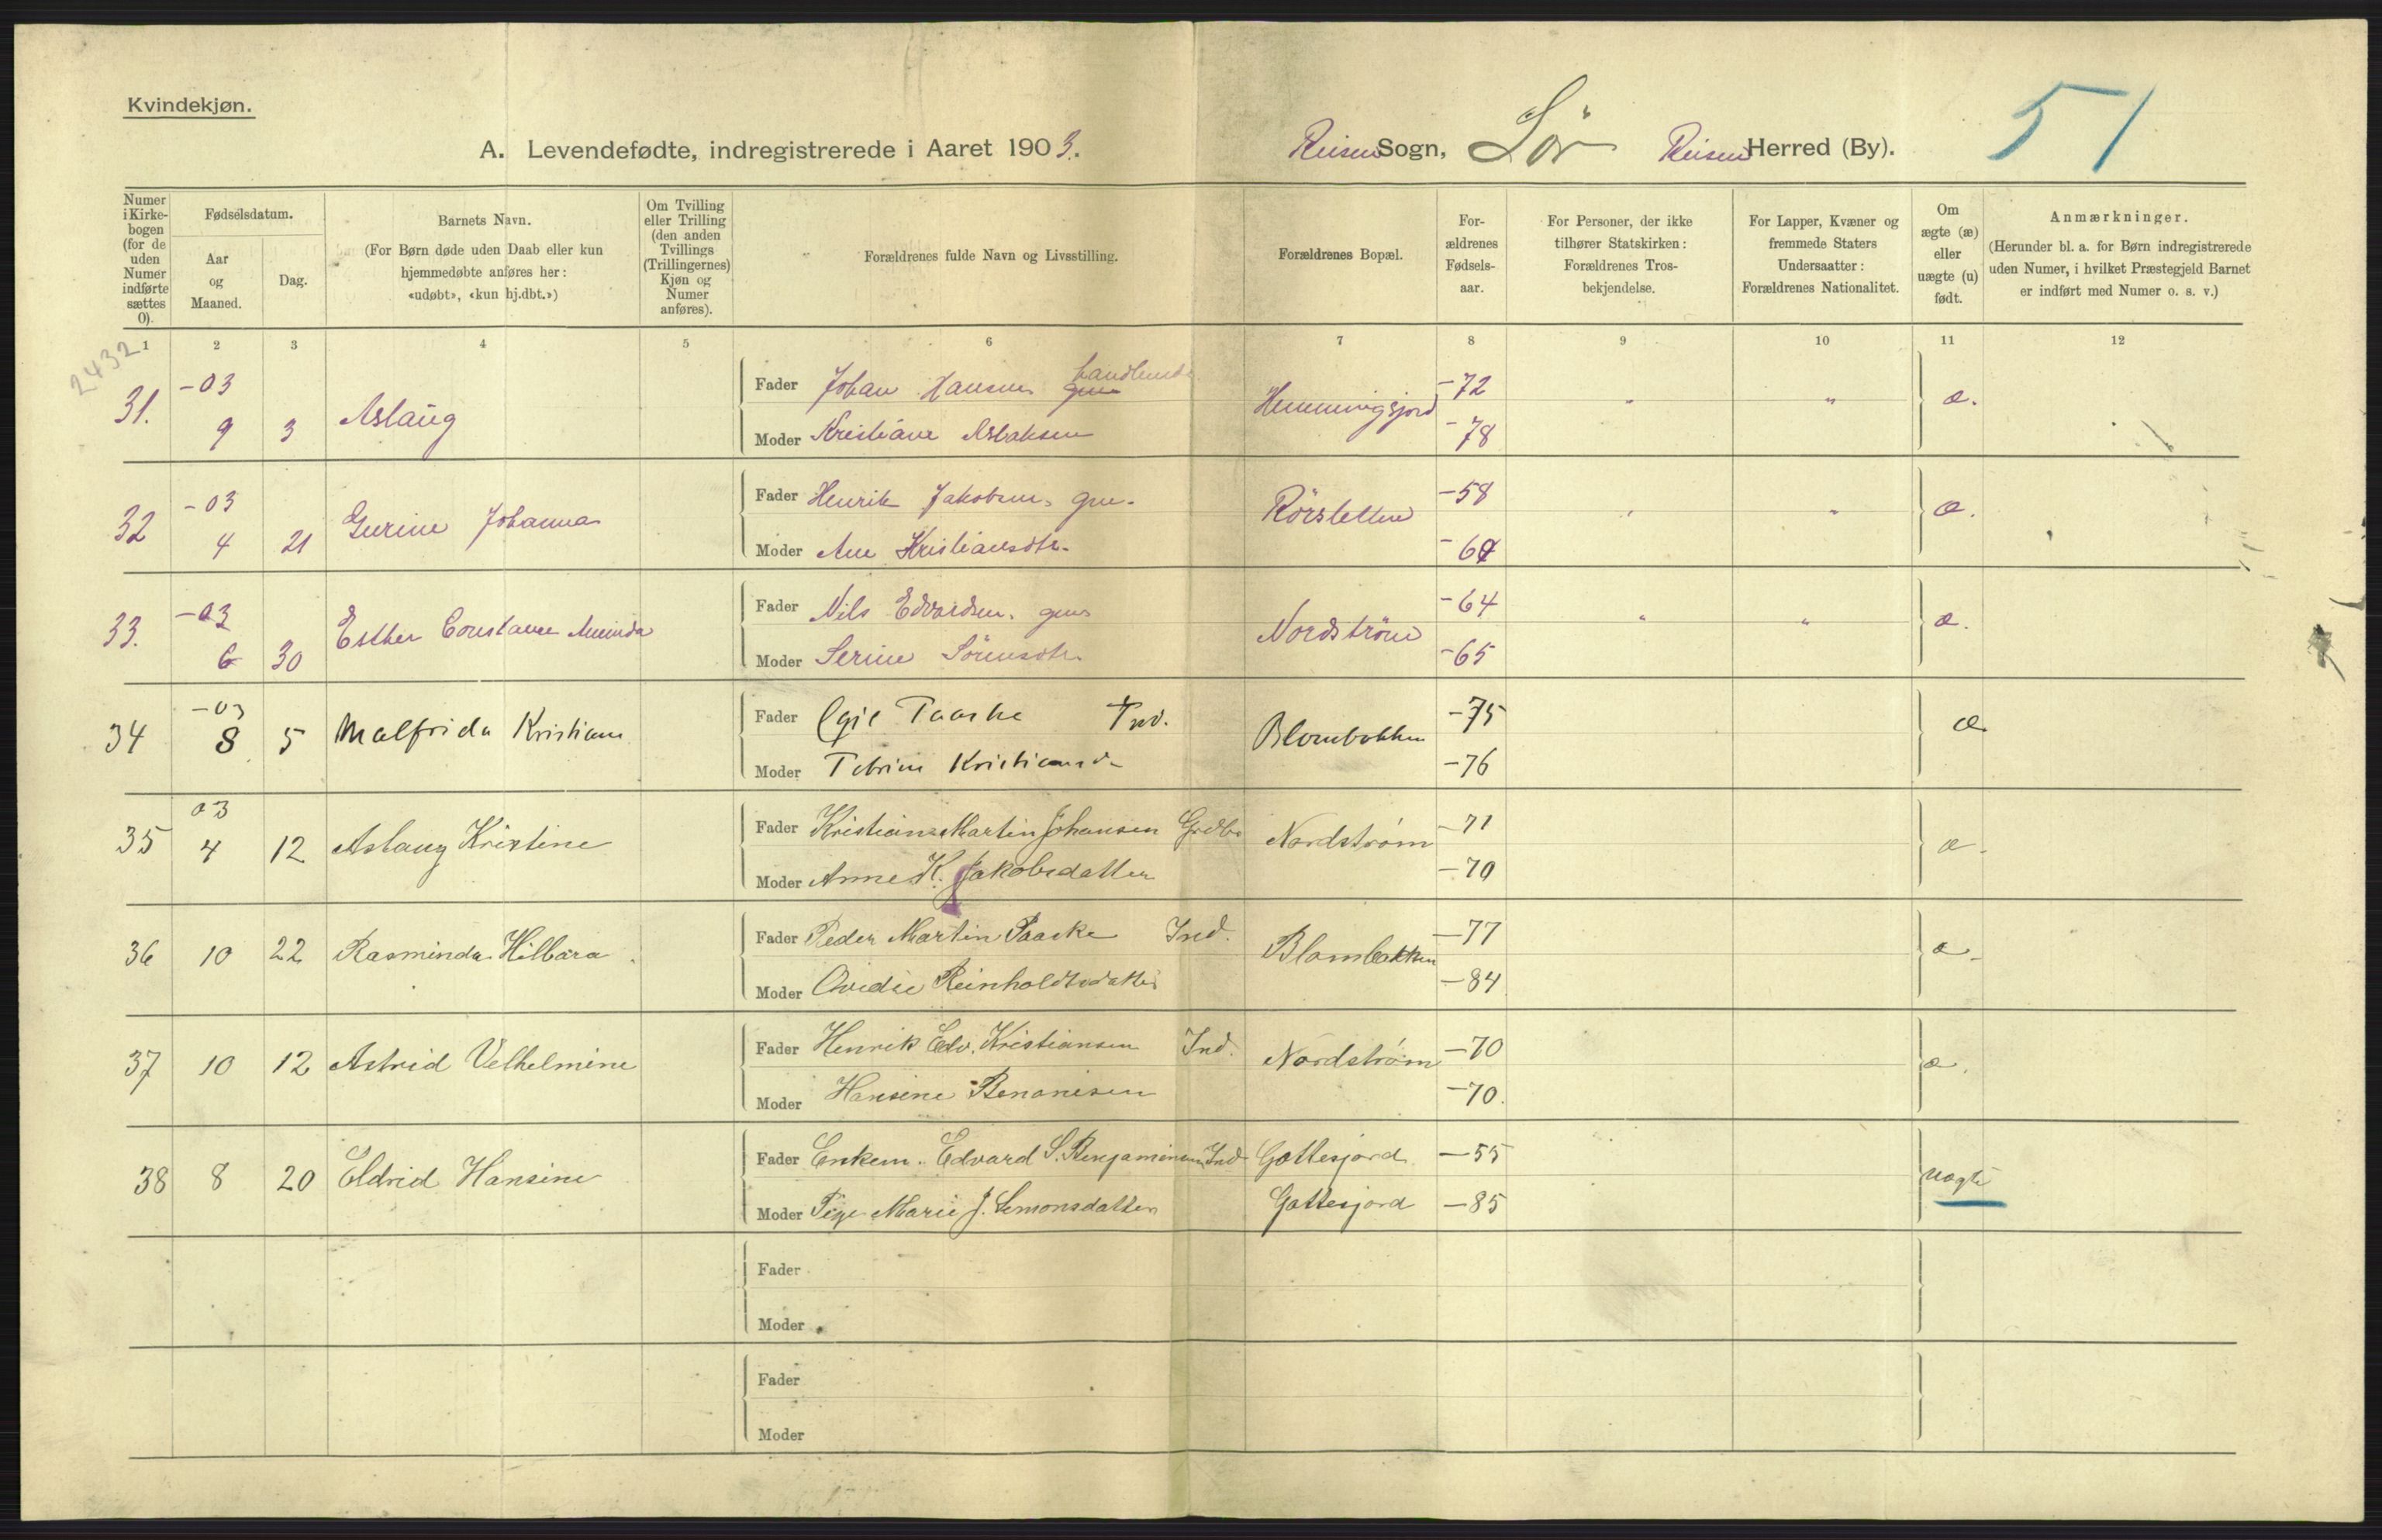 Kvindekjøn.
A. Levendefødte, indregistrerede i Aaret 1903.
Reisen Sogn, Sör Reisen Herred (By).
51
Numer i Kirkebogen (for de uden Numer indførte sættes 0).
Fødselsdatum.
Aar og Maaned.
Dag.
Barnets Navn.
(For Børn døde uden Daab eller kun hjemmedøbte anføres her: «udøbt», «kun hj.dbt.»)
Om Tvilling eller Trilling (den anden Tvillings (Trillingernes) Kjøn og Numer anføres).
Forældrenes fulde Navn og Livsstilling.
Forældrenes Bopæl.
For-ældrenes Fødsels-aar.
For Personer, der ikke tilhører Statskirken: Forældrenes Tros-bekjendelse.
For Lapper, Kvæner og fremmede Staters Undersaatter: Forældrenes Nationalitet.
Om ægte (æ) eller uægte (u) født.
Anmærkninger.
(Herunder bl. a. for Børn indregistrerede uden Numer, i hvilket Præstegjeld Barnet er indført med Numer o. s. v.)
2432
1 2 3 4 5 6 7 8 9 10 11 12
31. -03 9 3 Aslaug Fader Johan Hansen Hemmingsjord -72 " " æ.
Moder Kristiane Aslaksen -78
32 -03 4 21 Gurine Johanna Fader Henrik Jakobsen, gm. Rörsletten -58 " " æ.
Moder Ane Kristiansdtr.
33. -03 6 30 Esther Constanse Aminda Fader Nils Edvardsen, Nordström -64 " " æ.
Moder Serine Sörensdtr. -65
34 -03 8 5 Malfrida Kristiane Fader Paaske Ind. Blombakken -75 æ.
Moder Kristiansd. -76
35 03 4 12 Aslaug Kristine Fader Kristian Martin Johansen Grdbr Nordstrøm -71 æ.
Moder Anne K. Jakobsdatter -70
36 10 22 Rasminda Hilbara. Fader Peder Martin Paaske Ind. Blombakken -77 æ.
Moder Ovedie Reinholdtsdatter -84
37 10 12 Astrid Velhelmine Fader Henrik Edv. Kristiansen Ind. Nordstrøm -70 æ.
Moder Hansine Benonisen -70.
38 8 20 Eldrid Hansine Fader Enkem. Edvard S. Benjaminsen Ind Gottesjord -55 uægte
Moder Pige Marie J. Simonsdatter Gottesjord -85
Fader
Moder
Fader
Moder